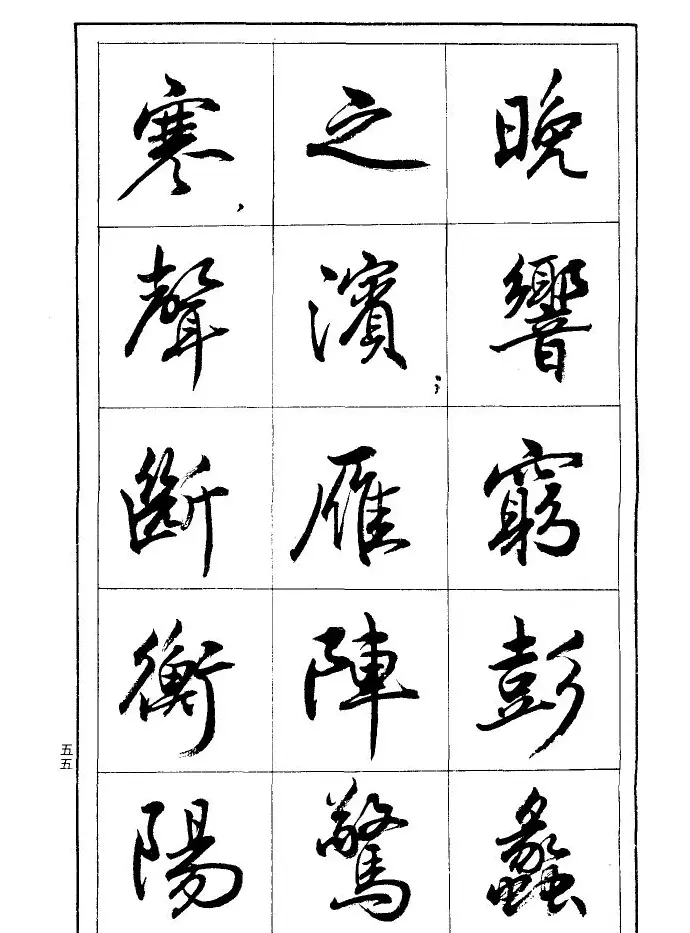 晚響窮彭蠡
之濱；雁陣驚
寒，聲斷衡陽
五五